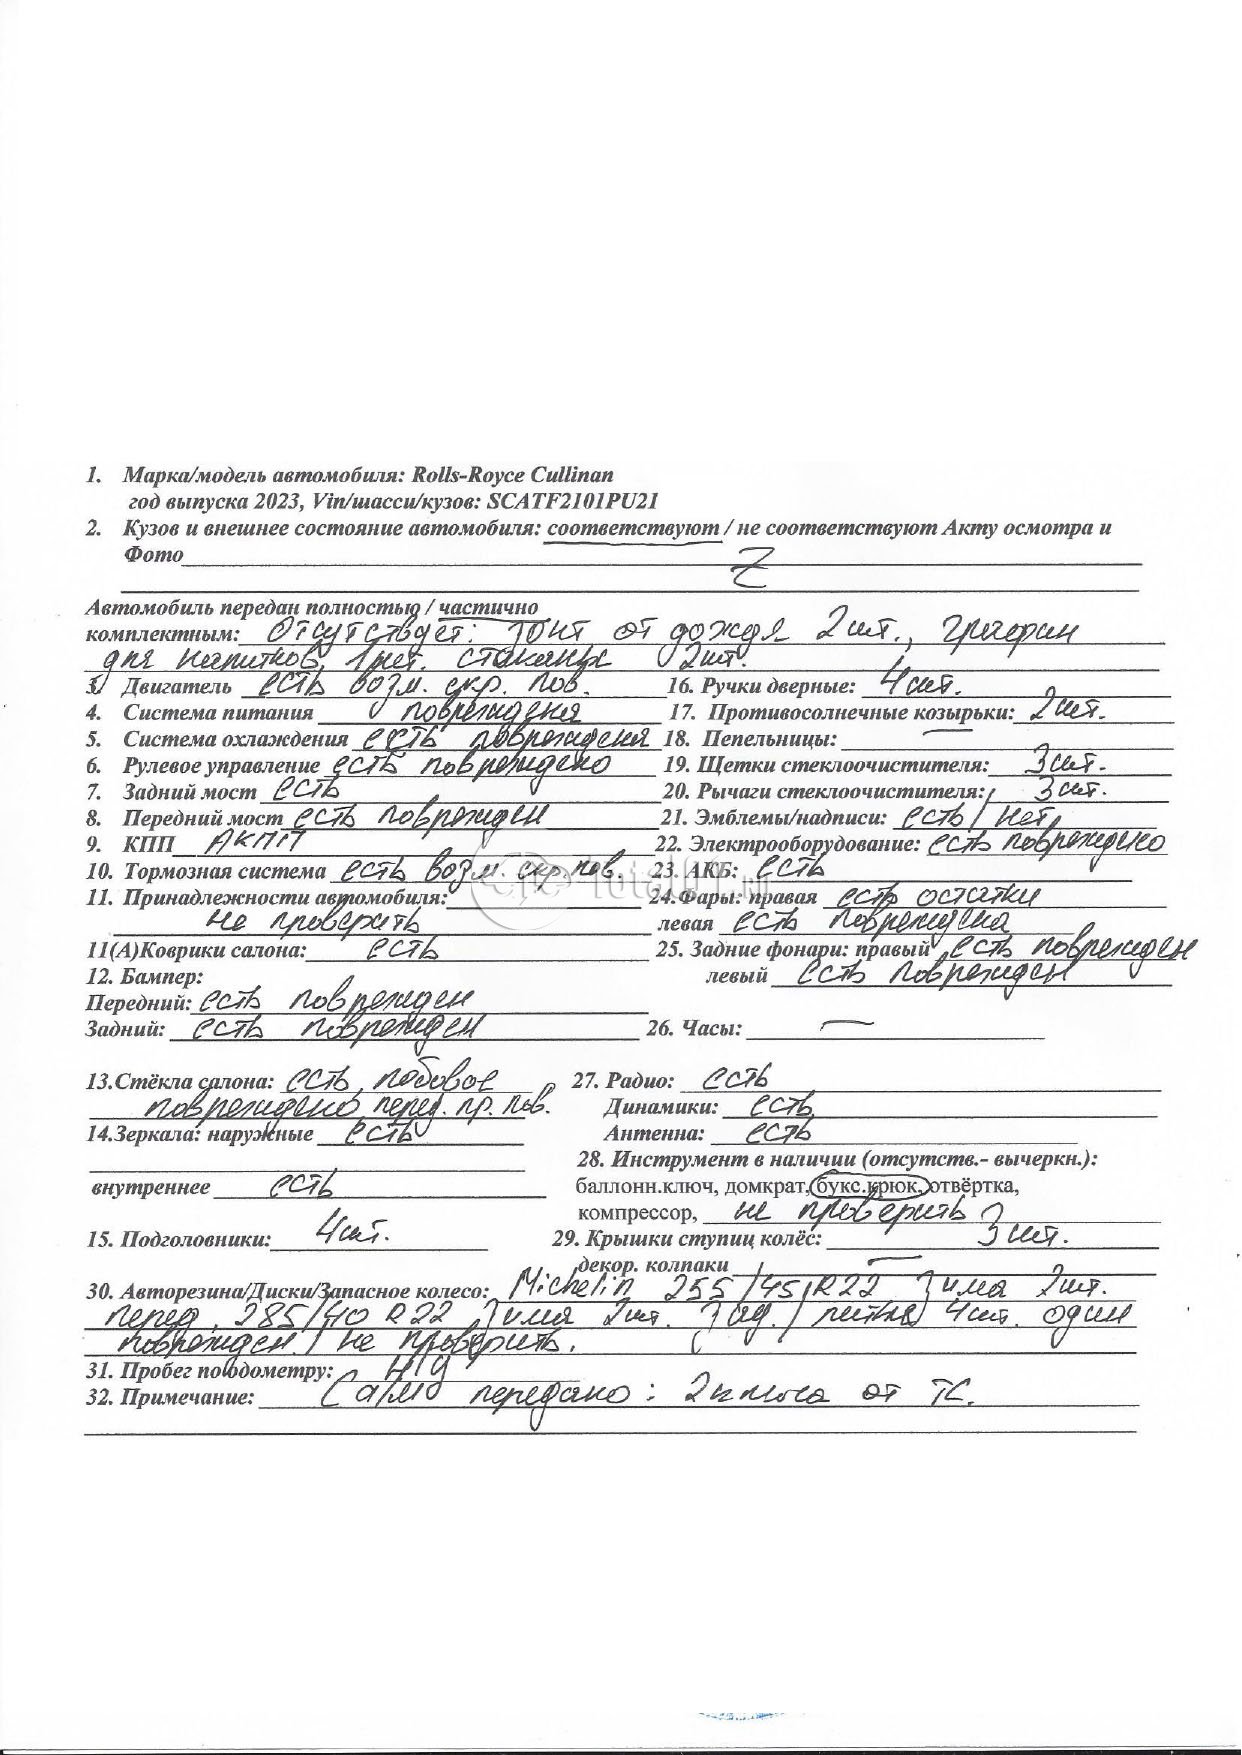 1. Марка/модель автомобиля: Rolls-Royce Cullinan
год выпуска 2023, Vin/шасси/кузов: SCATF2101PU21
2. Кузов и внешнее состояние автомобиля: соответствуют / не соответствуют Акту осмотра и
Фото Z
Автомобиль передан полностью / частично
комплектным: Отсутствует: зонт от дождя 2 шт., графин
для напитков, 1 шт. стаканы 2 шт.
3. Двигатель есть возм. скр. пов. 16. Ручки дверные: 4 шт.
4. Система питания повреждения 17. Противосолнечные козырьки: 2 шт.
5. Система охлаждения есть повреждения 18. Пепельницы: —
6. Рулевое управление есть повреждено 19. Щетки стеклоочистителя: 3 шт.
7. Задний мост есть 20. Рычаги стеклоочистителя: 3 шт.
8. Передний мост есть поврежден 21. Эмблемы/надписи: есть / нет
9. КПП АКПП 22. Электрооборудование: есть повреждено
10. Тормозная система есть возм. скр. пов. 23. АКБ: есть
11. Принадлежности автомобиля: 24. Фары: правая есть остатки
не проверить левая есть повреждена
11(А)Коврики салона: есть 25. Задние фонари: правый есть поврежден
12. Бампер: левый есть поврежден
Передний: есть поврежден
Задний: есть поврежден 26. Часы: —
13.Стёкла салона: есть, лобовое 27. Радио: есть
повреждено, перед. пр. пов. Динамики: есть
14.Зеркала: наружные есть Антенна: есть
28. Инструмент в наличии (отсутств.- вычеркн.):
внутреннее есть баллонн.ключ, домкрат, букс.крюк, отвёртка,
компрессор, не проверить
15. Подголовники: 4 шт. 29. Крышки ступиц колёс: 3 шт.
декор. колпаки —
30. Авторезина/Диски/Запасное колесо: Michelin 255/45/R22 Зима 2 шт.
перед, 285/40 R22 Зима 2 шт. Зад. / литые 4 шт. один
поврежден / не проверить.
31. Пробег по одометру: Н/Д
32. Примечание: передано: 2 ключа от ТС.